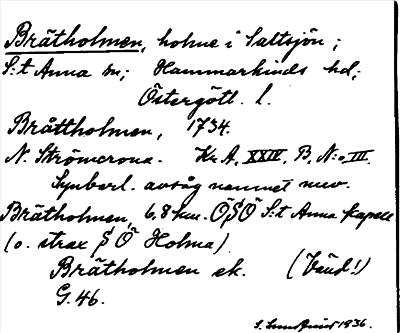 Brätholmen, holme i Saltsjön;
S:t Anna sn; Hammarkinds hd;
Östergötl. l.
Bråttholmen, 1734.
N. Strömcrona. Kr. A, XXIV, B, N:o III.
Synberl. avsåg namnet nuv.
Brätholmen, 6,8 km. ÖSÖ S:t Anna kapell
(o. strax S Ö Holma).
Brätholmen ek. (Vänd!)
G. 46.
1936.